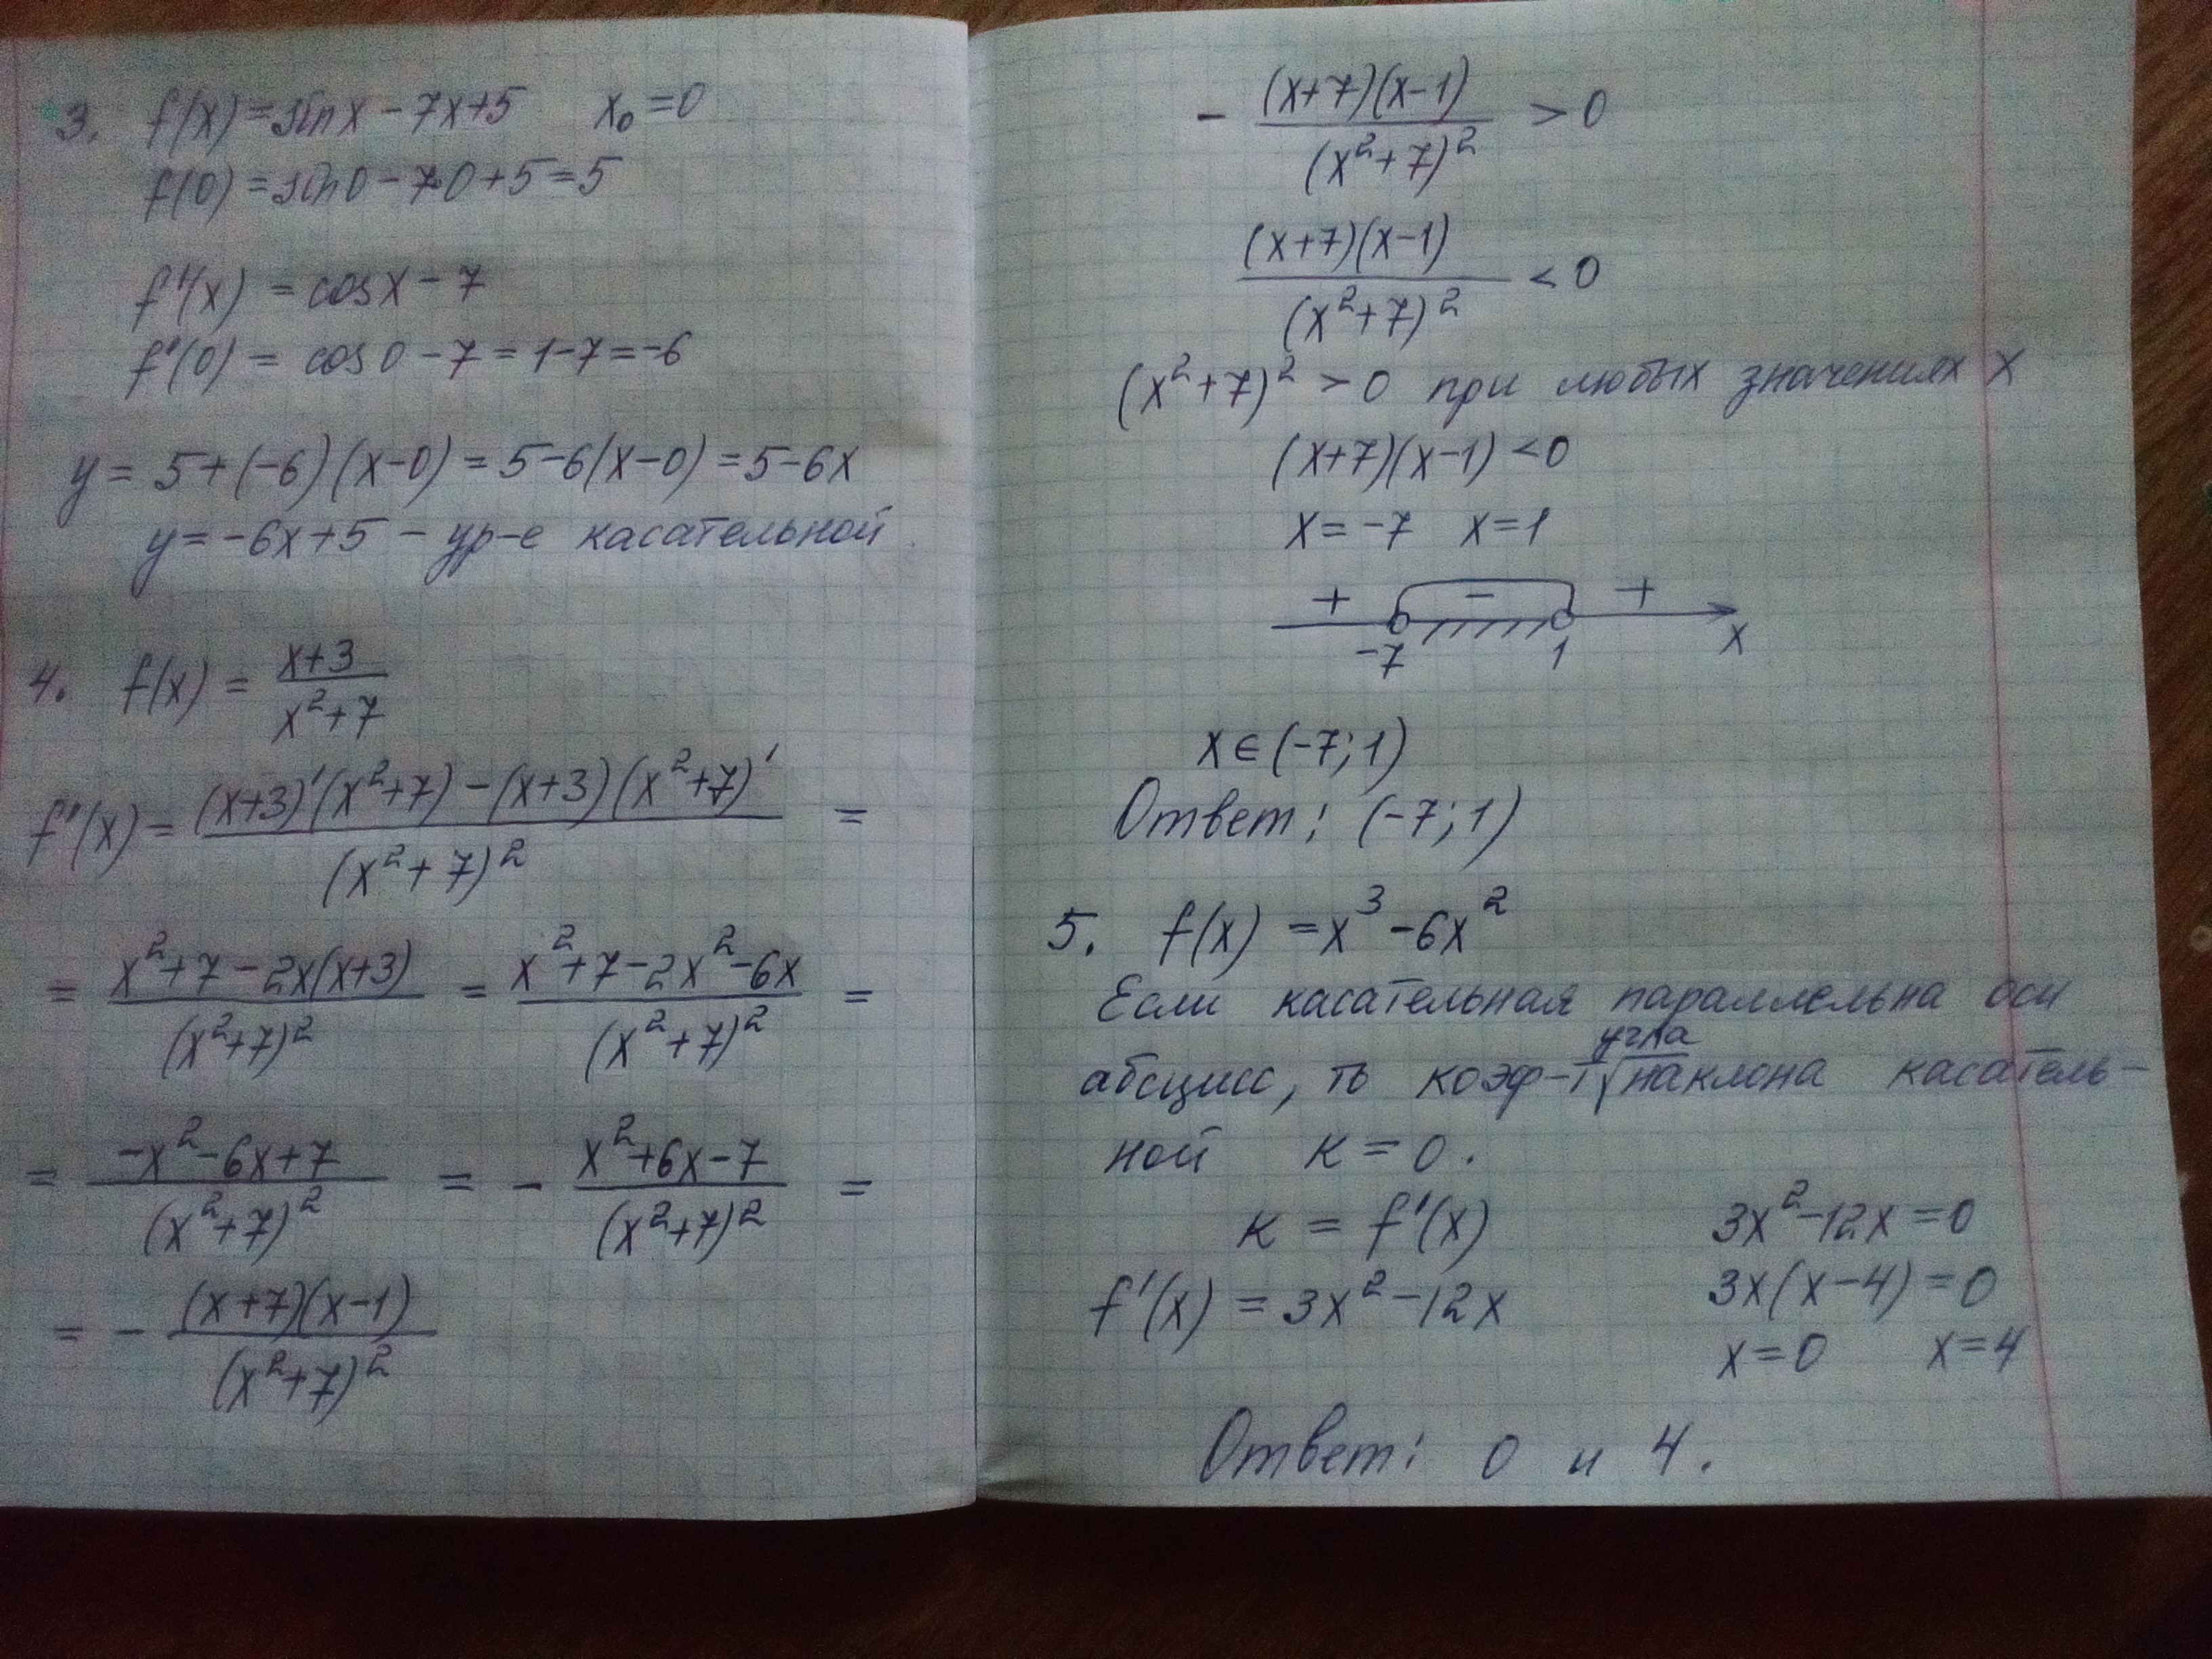 3. f(x) = sin x - 7x + 5   x₀ = 0
f(0) = sin 0 - 7·0 + 5 = 5
f'(x) = cos x - 7
f'(0) = cos 0 - 7 = 1 - 7 = -6
y = 5 + (-6)(x-0) = 5 - 6(x-0) = 5 - 6x
y = -6x + 5 - ур-е касательной
4. f(x) = (x+3)/(x²+7)
f'(x) = ((x+3)'(x²+7) - (x+3)(x²+7)')/(x²+7)² =
= (x²+7-2x(x+3))/(x²+7)² = (x²+7-2x²-6x)/(x²+7)² =
= (-x²-6x+7)/(x²+7)² = - (x²+6x-7)/(x²+7)² =
= - ((x+7)(x-1))/(x²+7)²
- ((x+7)(x-1))/(x²+7)² > 0
((x+7)(x-1))/(x²+7)² < 0
(x²+7)² > 0 при любых значениях x
(x+7)(x-1) < 0
x = -7   x = 1
+ - +
-7 1 x
x ∈ (-7; 1)
Ответ: (-7; 1)
5. f(x) = x³ - 6x²
Если касательная параллельна оси
абсцисс, то коэф-т угла наклона касатель-
ной к = 0.
к = f'(x)
f'(x) = 3x² - 12x
3x² - 12x = 0
3x(x-4) = 0
x = 0   x = 4
Ответ: 0 и 4.